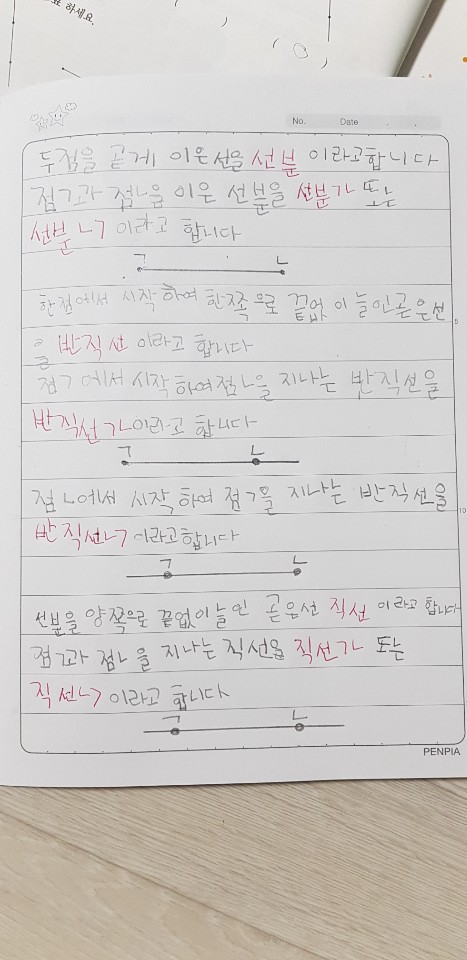 표 하세요.
No. Date
두점을 곧게 이은선을 선분 이라고합니다
점ㄱ과 점ㄴ을 이은 선분을 선분ㄱㄴ 또는
선분ㄴㄱ 이라고 합니다
ㄱ ㄴ
한점에서 시작하여 한쪽으로 끝없이 늘인곧은선
을 반직선 이라고 합니다
점ㄱ에서 시작하여점ㄴ을 지나는 반직선을
반직선ㄱㄴ이라고 합니다
ㄱ ㄴ
점ㄴ에서 시작하여 점ㄱ을 지나는 반직선을
반직선ㄴㄱ이라고합니다
ㄱ ㄴ
선분을 양쪽으로 끝없이늘인 곧은선 직선 이라고 합니다
점ㄱ과 점ㄴ을 지나는 직선을 직선ㄱㄴ 또는
직선ㄴㄱ 이라고 합니다
ㄱ ㄴ
PENPIA